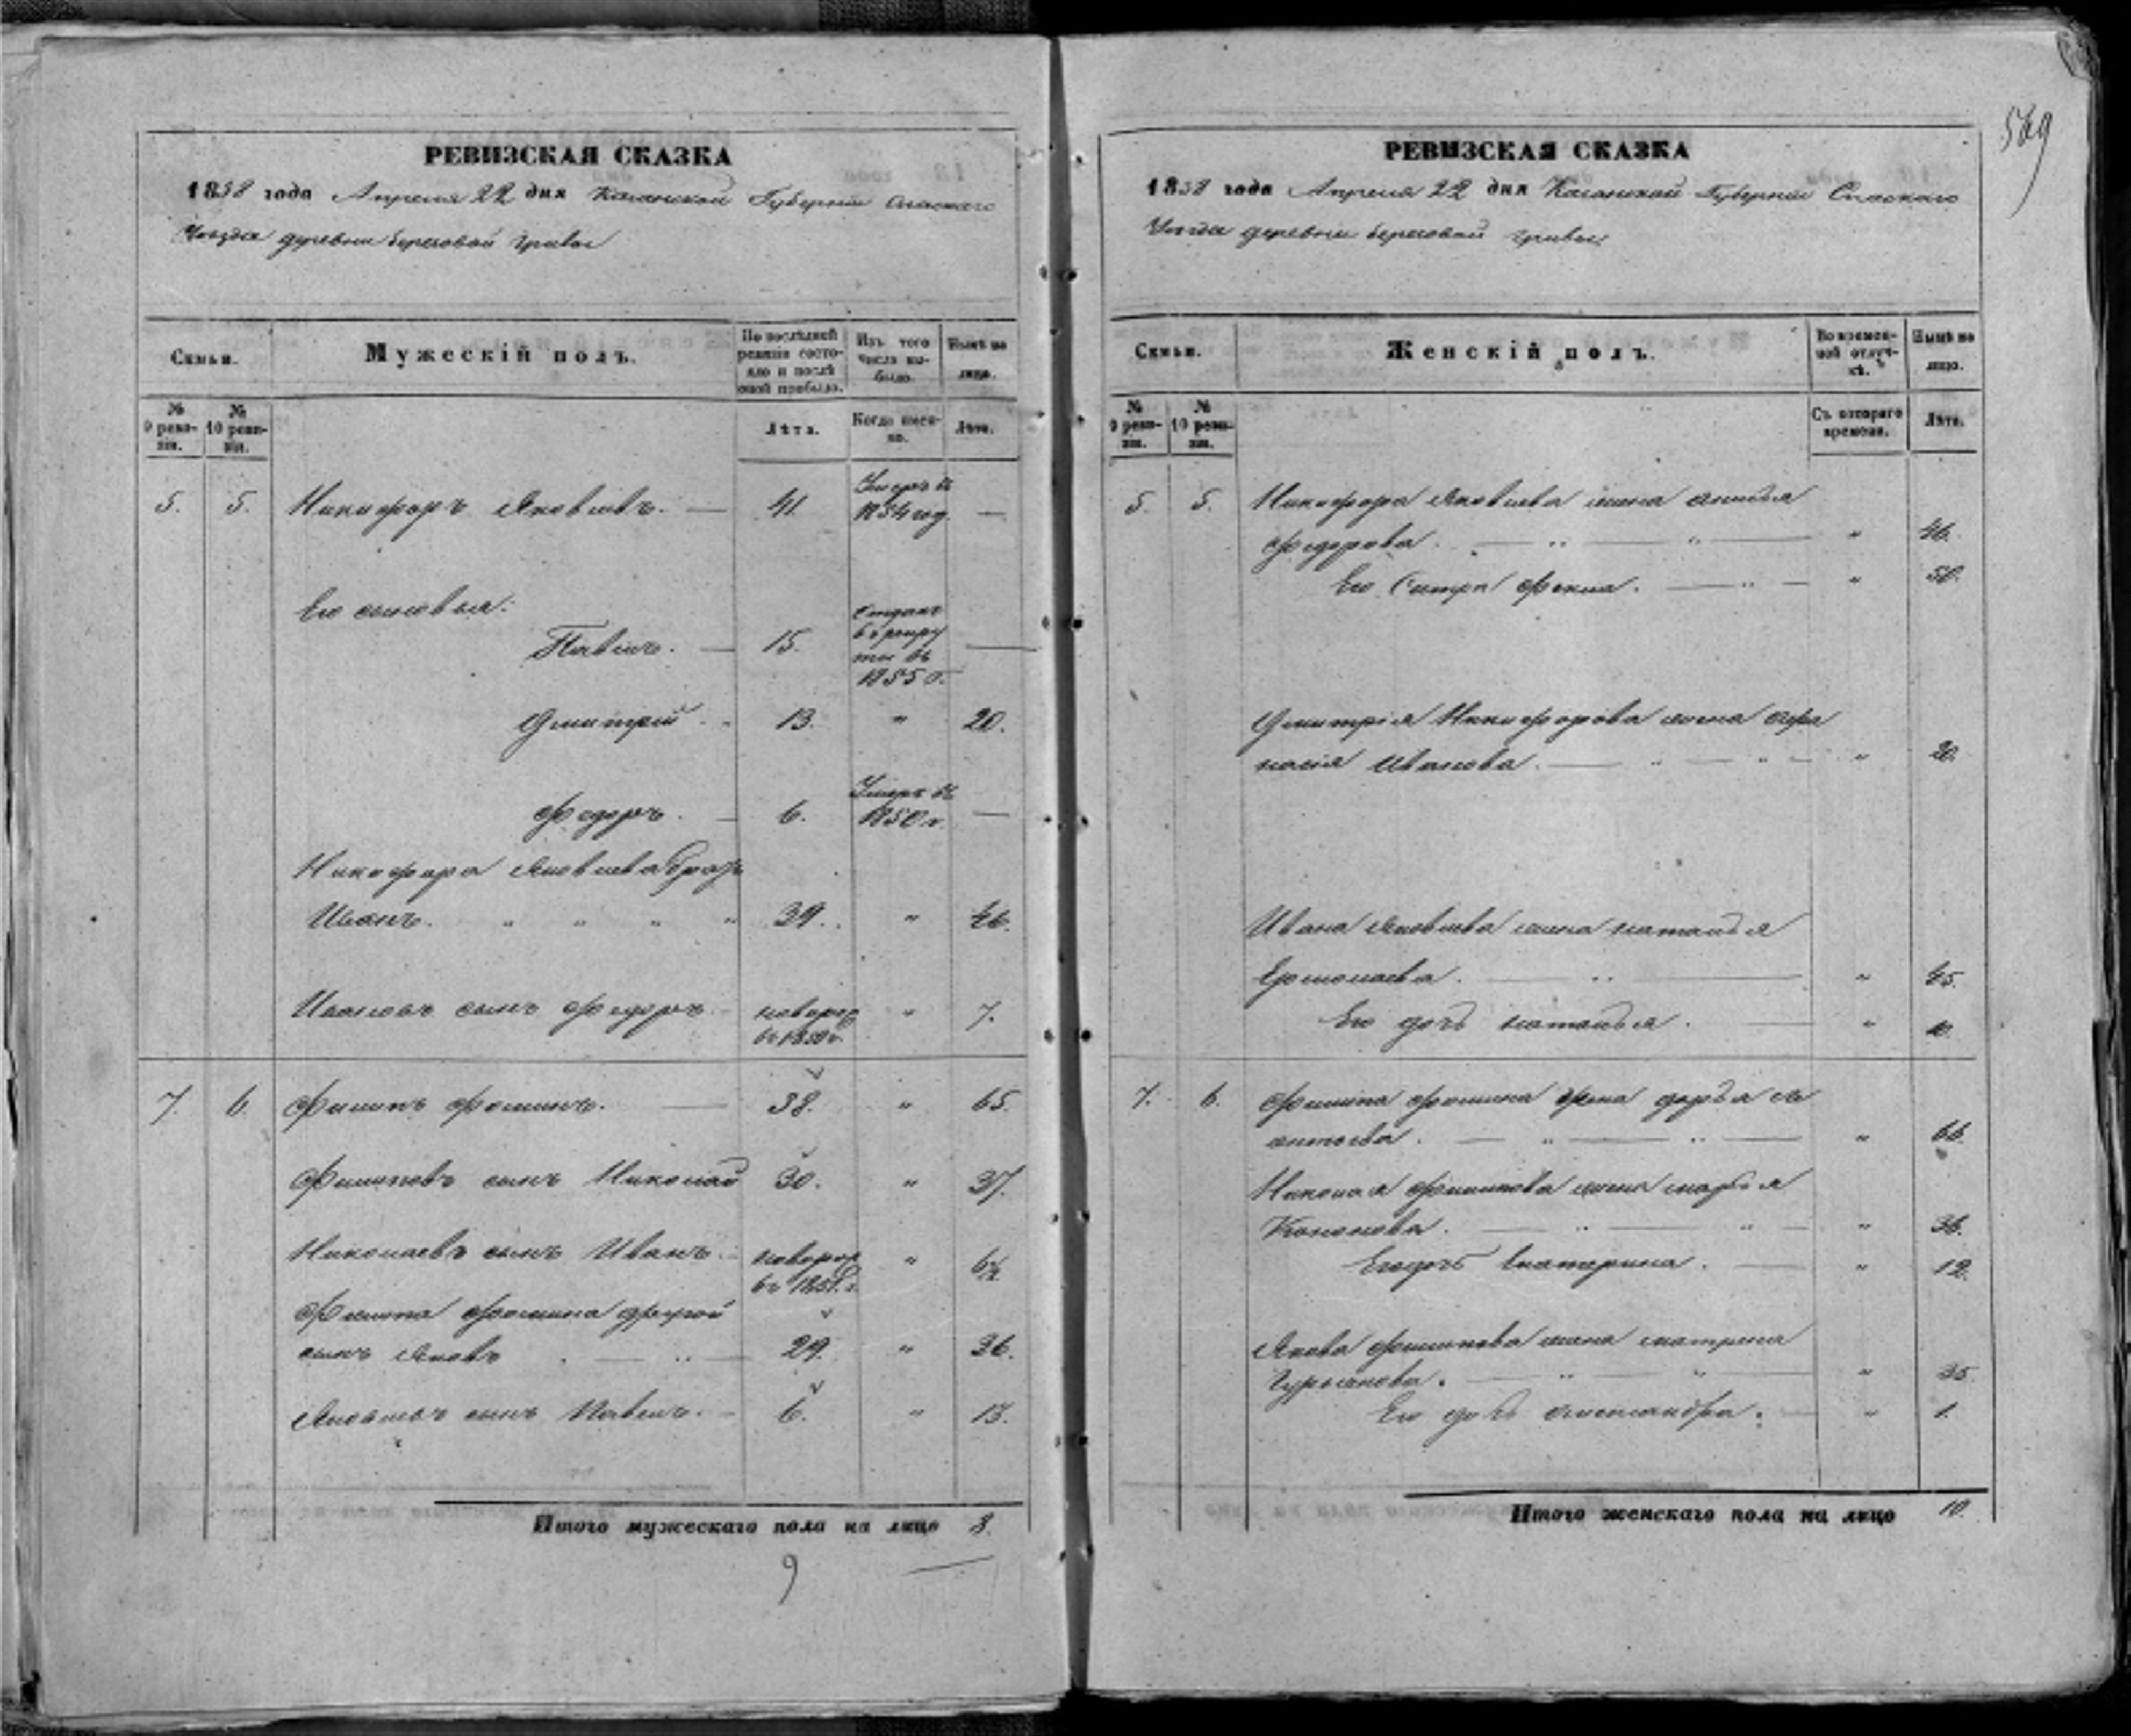 РЕВИЗСКАЯ СКАЗКА
1858 года Апреля 22 дня Казанской Губернiи Спаскаго
Уезда деревни береговой гривы
Семьи.
Мужескiй полъ.
По послѣдней ревизiи состояло и послѣ оной прибыло.
Изъ того числа выбыло.
Нынѣ на лицо.
№ 9 ревизiи.
№ 10 ревизiи.
Лѣта.
Когда именно.
Лѣта.
5. 5. Никифоръ Яковлевъ. — 41. Умеръ въ 1854 год. —
Его сыновья:
Павелъ. — 15. Отданъ въ рекруты въ 1855 г. —
Дмитрiй. „ 13. „ 20.
Федоръ. — 6. Умеръ въ 1850 г. —
Никифора Яковлева братъ
Иванъ. „ „ „ „ 39. „ 46.
Ивановъ сынъ Федоръ. новорож въ 1850 г. „ 7.
7. 6 Филипъ Фоминъ. — 38. „ 65.
Филиповъ сынъ Николай 30. „ 37.
Николаевъ сынъ Иванъ. новорож въ 1851 г. „ 6½
Филипа Фомина другой
сынъ Яковъ — „ — 29. „ 36.
Яковлевъ сынъ Павелъ. — 6. „ 13.
Итого мужескаго пола на лицо 8.
9
569
РЕВИЗСКАЯ СКАЗКА
1858 года Апреля 22 дня Казанской Губернiи Спаскаго
Уезда деревни береговой гривы
Семьи.
Женскiй полъ.
Во временной отлучкѣ.
Нынѣ на лицо.
№ 9 ревизiи.
№ 10 ревизiи.
Съ котораго времени.
Лѣта.
5. 5. Никифора Яковлева жена
Федорова. — „ — „ — „ 46.
Его Сестра Фекла. — „ — „ 50.
Дмитрiя Никифорова жена Афа
насiя Иванова. — „ — „ — „ 20.
Ивана Яковлева жена Наталья
Ермолаева. — „ — „ 45.
Его дочь Наталья. — „ 10.
7. 6. Филипа Фомина жена Дарья Ле
онтьева. — „ — „ — „ 66.
Николая Филипова жена Марья
Кононова. — „ — „ — „ 36.
Егодочь Екатерина. — „ 12.
Якова Филипова жена Матрена
Гурьянова. — „ — „ — „ 35.
Его дочь Александра. — „ 1.
Итого женскаго пола на лицо 10.